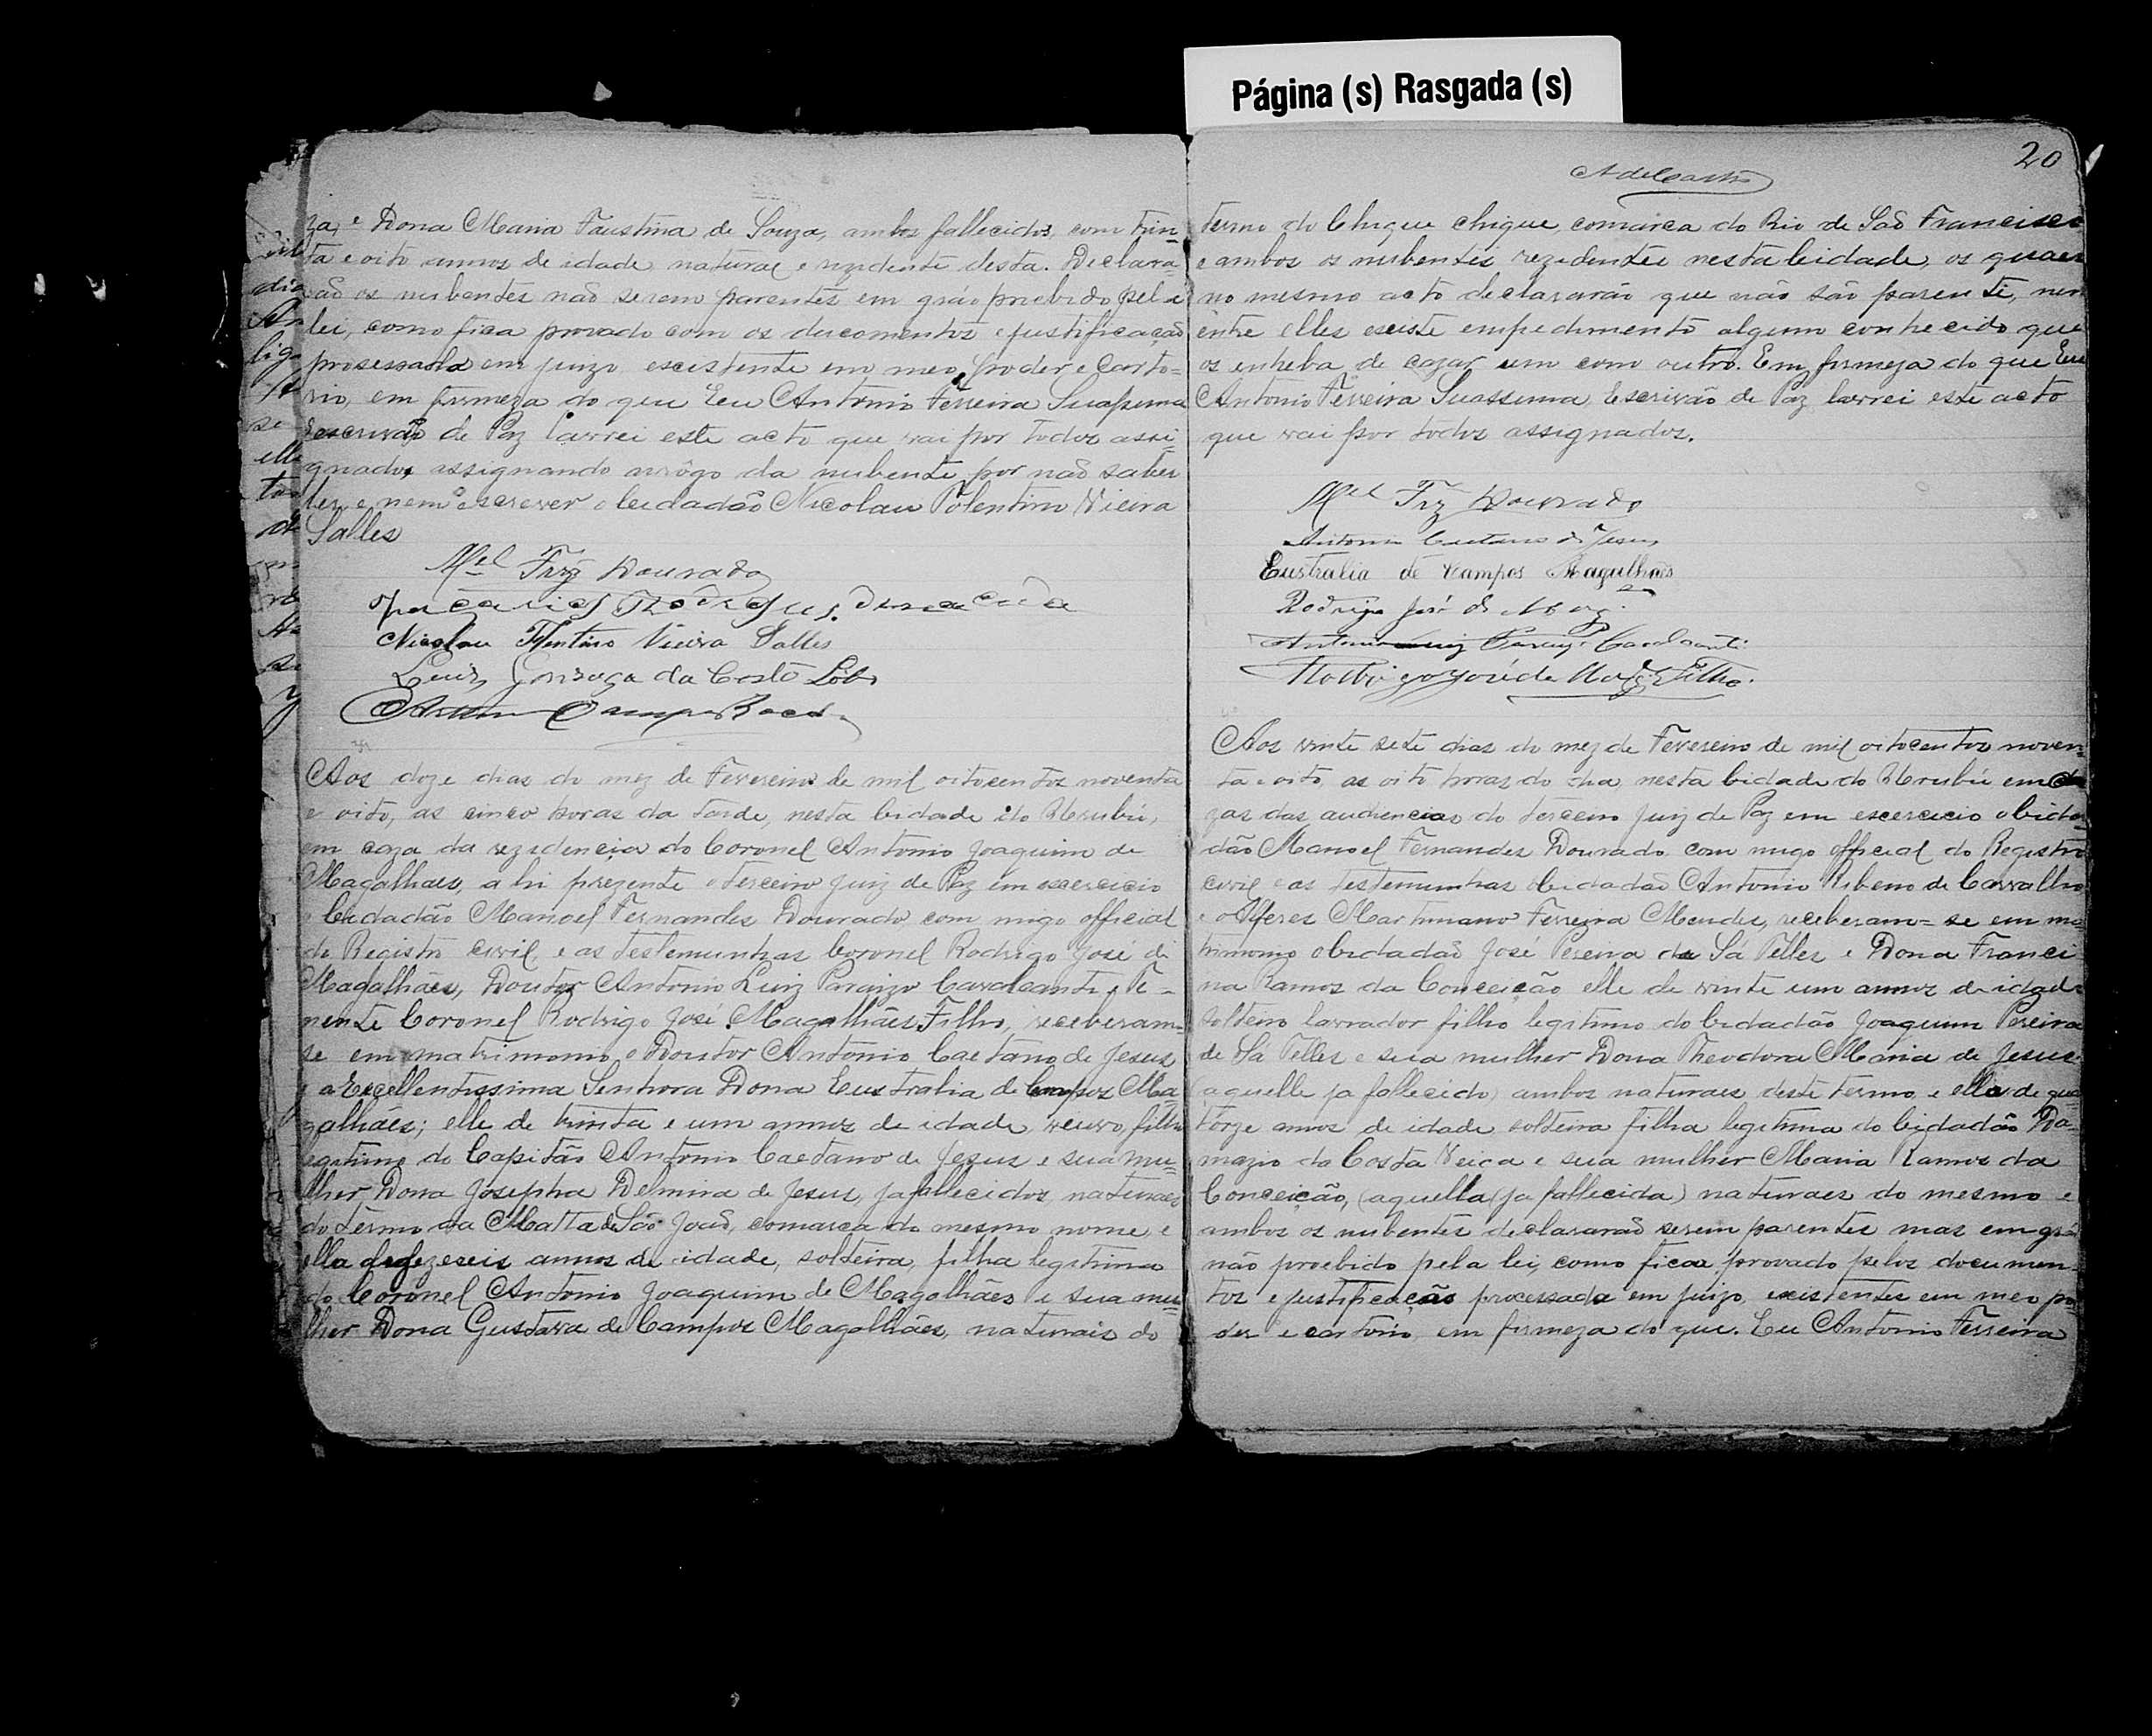 Página (s) Rasgada (s)
za, e Dona Maria Faustina de Souza, ambos fallecidos, com trin=
ta e oito annos de idade, natural e rezidente desta. Declara=
rão os nubentes não serem parentes em gráo proebido pela
lei, como fica provado com os ducomentos e justificação
prosessada em juizo escistente em meo poder e Carto=
rio, em firmeza do que Eeu Antonio Ferreira Suassuna
Escrivão de Paz lavrei este acto que vai por todos assi=
gnados, assignando arrôgo da nubente por não saber
ler e nem escrever o Cidadão Nicolau Tolentino Vieira
Salles
Mel Frz Dourado
Nicolau Tolentino Vieira Salles
Luiz Gonzaga da Costa Lobo
Aos doze dias do mez de Fevereiro de mil oitocentos noventa
e oito, as cinco horas da tarde, nesta Cidade do Urubú,
em caza da rezidencia do Coronel Antonio Joaquim de
Magalhães, ahi prezente o terceiro Juiz de Paz em escercicio
o Cidadão Manoel Fernandes Dourado, com migo official
do Registro civil, e as testemunhas Coronel Rodrigo José de
Magalhães, Doutor Antonio Luiz Paraizo Cavalcante, e Te=
nente Coronel Rodrigo José Magalhães Filho, receberam=
se em matrimonio o Doutor Antonio Caetano de Jesus
e a Excellentissima Senhora Dona Eustralia de Campos Ma=
galhães; elle de trinta e um annos de idade, veuvo, filho
legitimo do Capitão Antonio Caetano de Jesus e sua mu=
lher Dona Josepha Delmira de Jesus, ja fallecidos, naturaes
do têrmo da Matta de São João, comarca do mesmo nome, e
ella dezezeseis annos de idade, solteira, filha legitima
do Coronel Antonio Joaquim de Magalhães e sua mu=
lher Dona Gustava de Campos Magalhães, naturais do
20
termo do Chique chique, comarca do Rio de São Francisco
e ambos os nubentes rezedentes nesta Cidade, os quaes
no mesmo acto declararão que não são parente, nem
entre elles esciste empedimento algum conhecido que
os enheba de cazar um com outro. Em firmeza do que Eeu
Antonio Ferreira Suassuna, Escrivão de Paz lavrei este acto
que vai por todos assignados.
Mel Frz Dourado
Antonio Caetano de Jesus
Eustralia de Campos Magalhães
Rodrigo José de Magães
Antonio Luiz Paraizo Cavalcanti
Rodrigo José de Magães Filho.
Aos vinte sete dias do mez de Fevereiro de mil oitocentos noven=
ta e oito, as oito horas do dia, nesta Cidade do Urubú em ca
zas das audiencias do terceiro Juiz de Paz em escercicio o Cida=
dão Manoel Fernandes Dourado com migo official do Registro
civil e as testemunhas o Cidadão Antonio Ribeiro de Carvalho
e o Alferes Martiniano Ferreira Mendes, receberam=se em ma=
trimonio o Cidadão José Pereira de Sá Telles e Dona Franci
na Ramos da Conceição elle de vinte um annos de idade
solteiro lavrador filho legitimo do Cidadão Joaquim Pereira
de Sá Telles e sua mulher Dona Theodora Maria de Jesus
(aquelle ja fallecido) ambos naturaes deste termo, e ella de qua=
torze annos de idade solteira filha legitima do Cidadão Da=
mazio da Costa Veiga e sua mulher Maria Ramos da
Conceição, (aquella (ja fallecida) naturaes do mesmo e
ambos os nubentes declararaõ serem parentes mas em grá
não proebido pela lei, como ficou provado pelos documen=
tos e justificação processada em juizo, existentes em meo po=
der e cartorio, em firmeza do que. Eu Antonio Ferreira